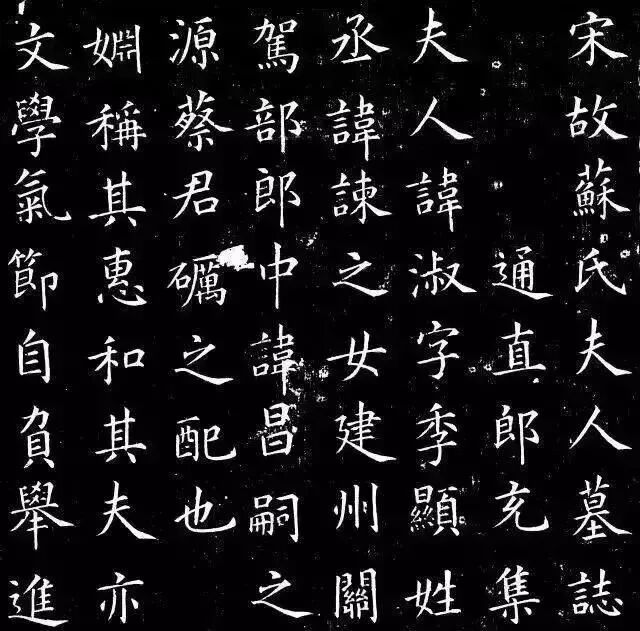 宋故蘇氏夫人墓誌
通直郎充集
夫人諱淑字季顯姓
丞諱諫之女建州關
駕部郎中諱昌嗣之
源蔡君礪之配也
婣稱其惠和其夫亦
文學氣節自負舉進